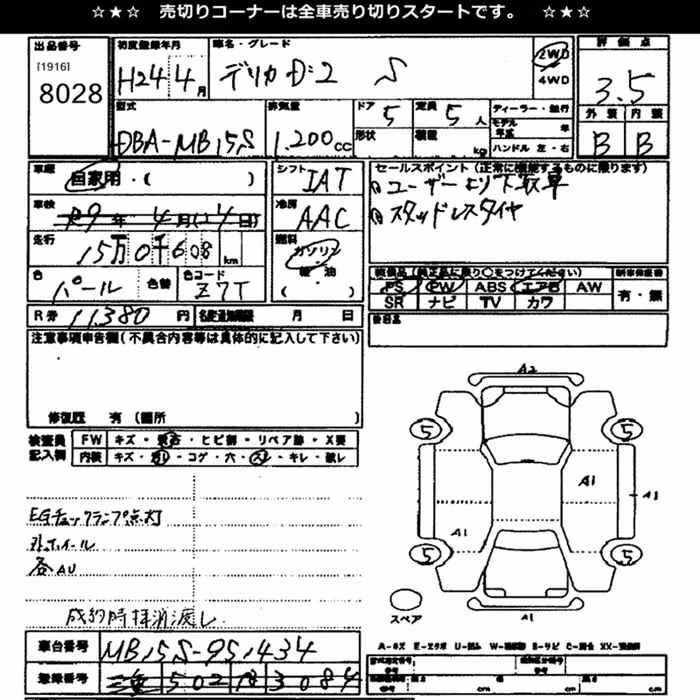 ☆★☆ 売切りコーナーは全車売り切りスタートです。 ☆★☆
出品番号 初度登録年月 車名・グレード 評価点
[1916] 8028 H24 4月 デリカD:2 S 2WD 4WD 3.5
型式 排気量 ドア 5 定員 5人 ディーラー・並行 外装 内装
DBA-MB15S 1.200cc 形状 積載 kg モデル年式 年 ハンドル 左・右 B B
車歴 自家用・( ) シフト IAT セールスポイント(正常に機能するものに限ります)
車検 R9年4月(14日) 冷房 AAC ①ユーザーより下取車
②スタッドレスタイヤ
走行 15万0千608km 燃料 ガソリン 軽油 ( )
色 パール 色替 色コード Z7T
装備品(純正品に限り○をつけてください)
PS PW ABS エアB AW 有・無
SR ナビ TV カワ
R券 11,380円 名変通知期限 月 日
後日品
注意事項申告欄(不具合内容等は具体的に記入して下さい)
修復歴 有(箇所 )
検査員記入欄 FW キズ・飛石・ヒビ割・リペア跡・X要
内装 キズ・汚れ・コゲ・穴・スレ・キレ・破レ
EGチェックランプ点灯
外ホイール
各AU
成約時抹消渡し
車台番号 MB15S-951434
登録番号 三重 502 3084
A2
5 5
A1 A1
A1
5 5
スペア A1
A-キズ E-エクボ U-凹み W-補修跡 S-サビ C-腐食 XX-交換済
cm cm cm